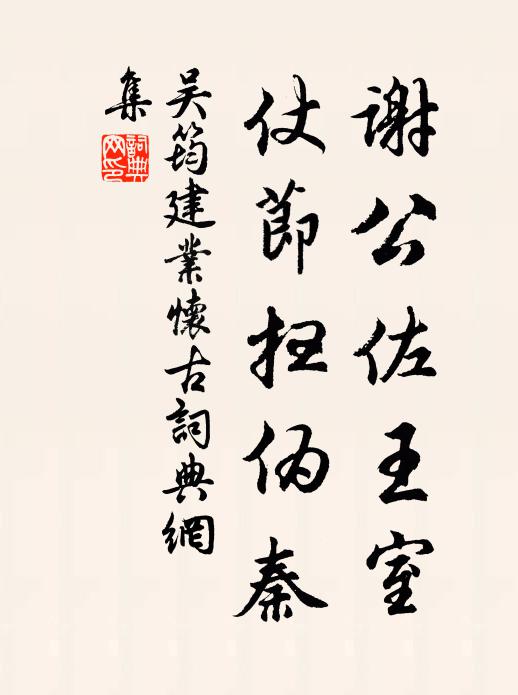 謝公佐王室
仗節掃偽秦
吳筠建業懷古詞典網
集
詞典網印